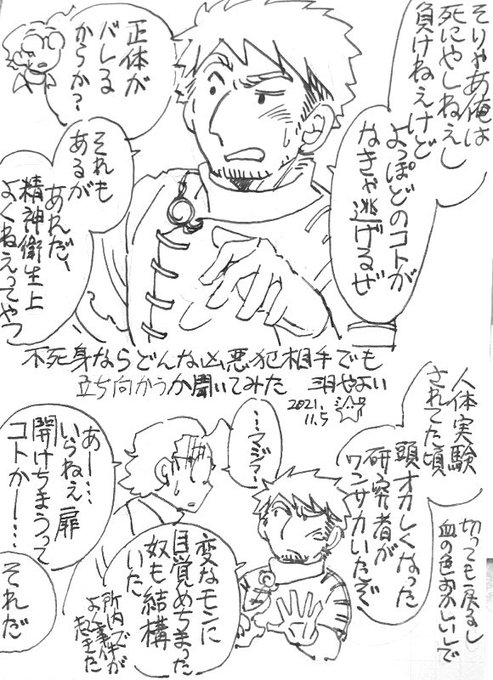 そりゃあ俺は
死にやしねえし
負けねえけど
よっぽどのコトが
なきゃ逃げるぜ
正体が
バレる
からか?
それも
あるが
あれだ、
精神衛生上
よくねえってやつ
不死身ならどんな凶悪犯相手でも
立ち向かうか聞いてみた
2021.
11.5
人体実験
されてた頃
頭オカしくなった
研究者が
ワンサカいたぞ
切っても戻るし
血の色おかしいで
…マジ?
変なモンに
目覚めちまった
奴も結構
いた
所内で事件が
よく起きた
あー…
いらねえ扉
開けちまうって
コトかー…
それだ